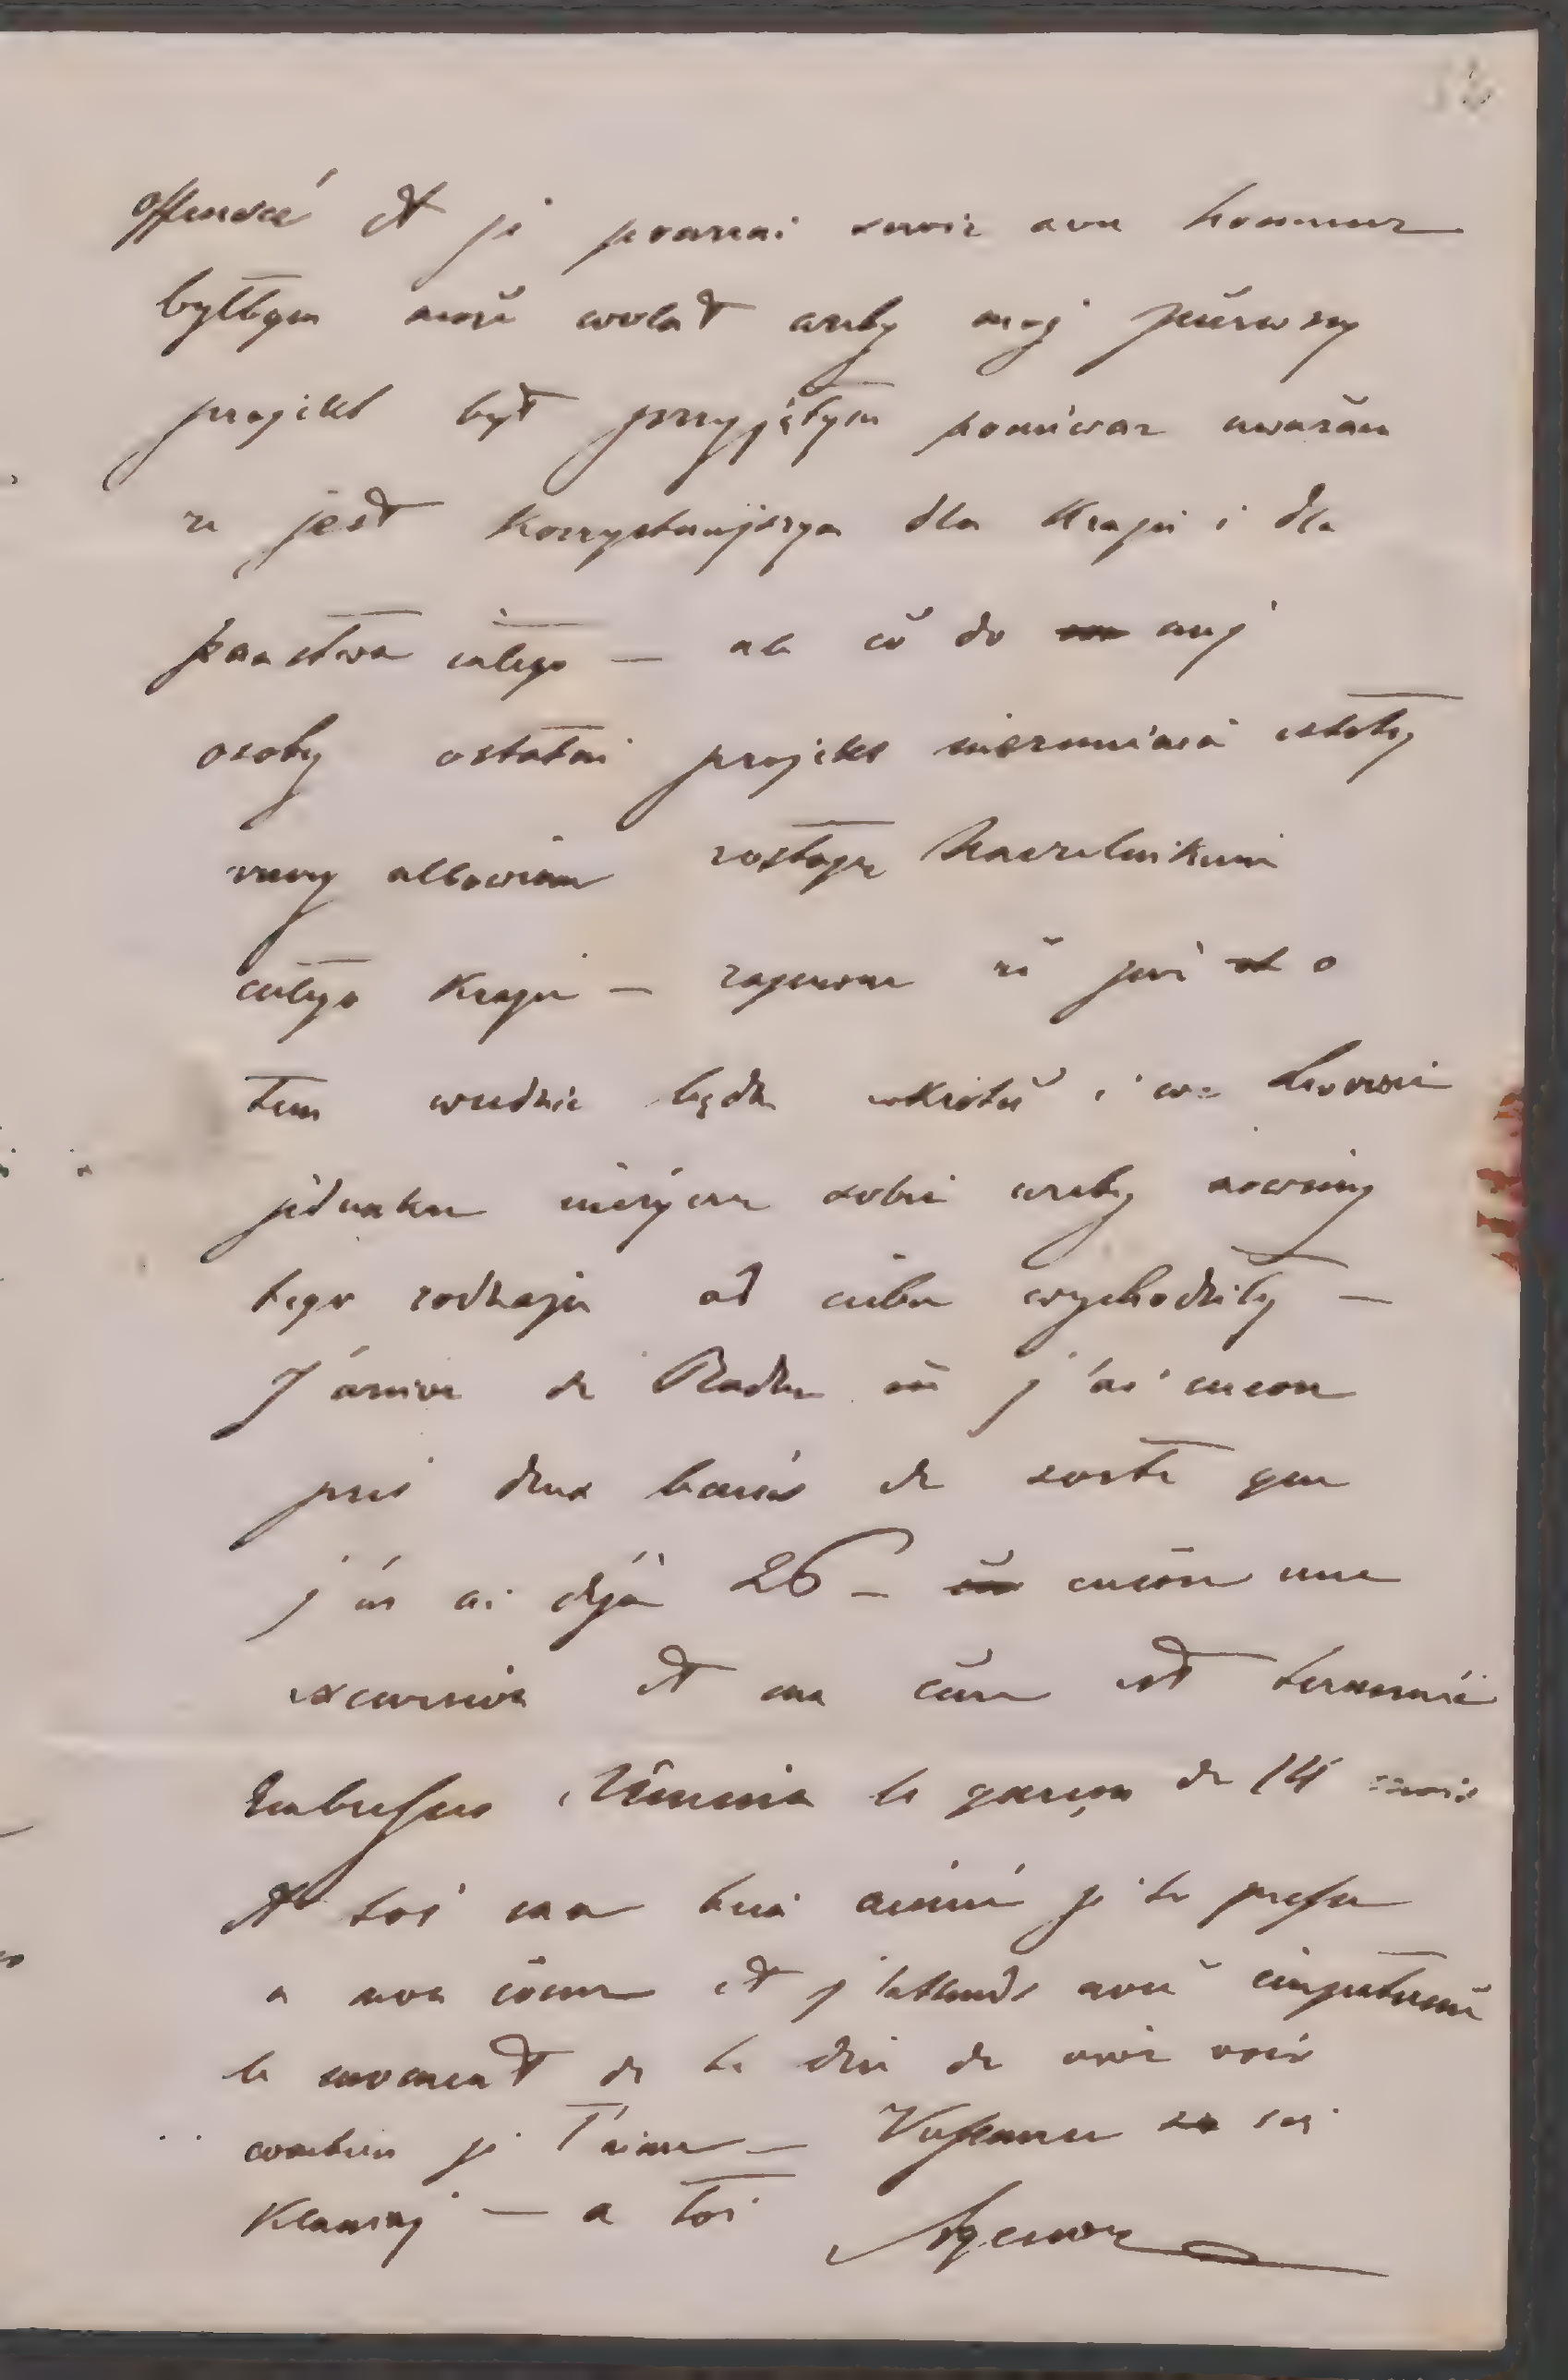 offensée et je pourrai servir avec honneur
byłbym może wolał ażeby moj pierwszy
projekt był przyjętym ponieważ uważam
ze jest korzystniejszym dla Kraju i dla
państwa całego — ale co do mej
osoby ostatni projekt niezmienia istoty
rzeczy albowiem zostaje Naczelnikiem
całego Kraju — zapewne że juz o
tem wiedzieć będą wkrotce i we Lwowie
jednakze nieżycze sobie ażeby nowiny
tego rodzaju od ciebie wychodziły —
J'arrive de Baden où j'ai encore
pris deux bains de sorte que
j'en ai déjà 26 — encore une
excursion et ma cure est terminée
Embrasse le garçon de 14 mois
et toi ma bien aimée je te presse
a mon coeur et j'attends avec impatience
le moment de te dire de vive voix
combien je t'aime —
Klaussy — a toi Agenor